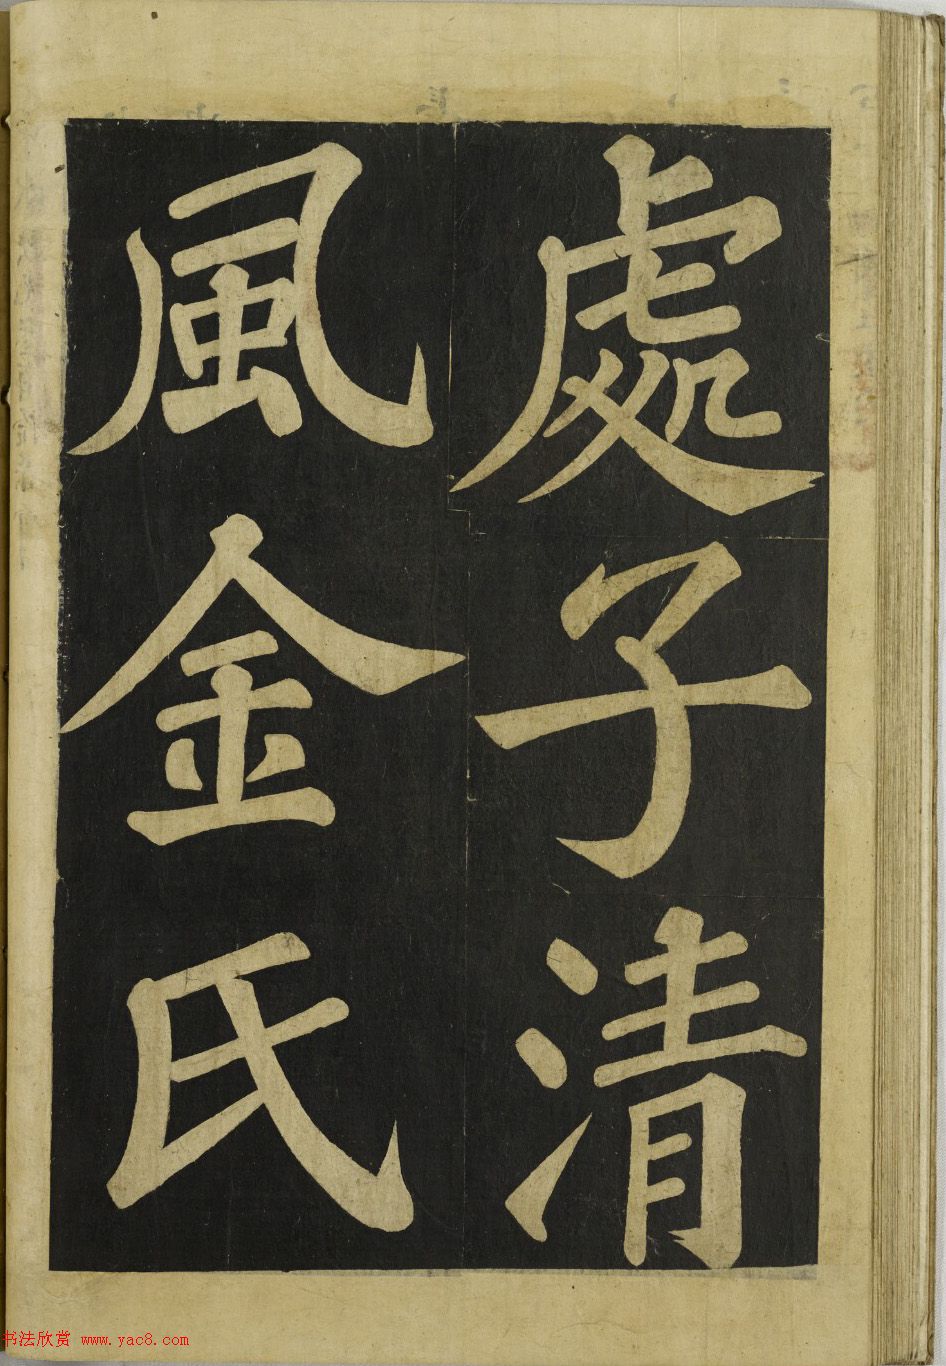 處子清
風金氏
书法欣赏 www.yac8.com